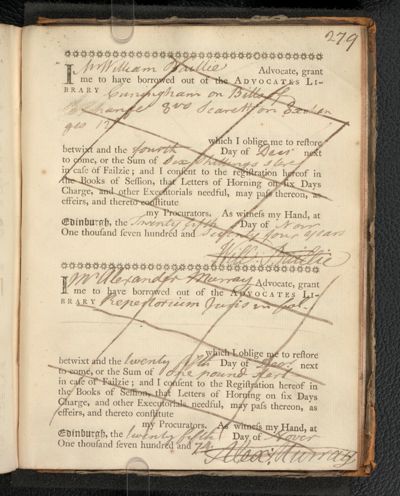 279
I Mr William Baillie Advocate, grant
me to have borrowed out of the ADVOCATES LI-
BRARY Cuningham on Bills of
Exchange 8vo Scarlett on Exchan
ges 12
which I oblige me to reſtore
betwixt and the fourth Day of Decr next
to come, or the Sum of Six shillings ster
in caſe of Failzie; and I conſent to the regiſtration hereof in
the Books of Seſſion, that Letters of Horning on ſix Days
Charge, and other Executorials needful, may paſs thereon, as
effeirs, and thereto conſtitute
my Procurators. As witneſs my Hand, at
Edinburgh, the Twenty fifth Day of Novr
One thouſand ſeven hundred and Seventy four years
Will: Baillie
I Mr Alexander Murray Advocate, grant
me to have borrowed out of the ADVOCATES LI-
BRARY Repertorium Juris
which I oblige me to reſtore
betwixt and the twenty fifth Day of Decr next
to come, or the Sum of One pound ster
in caſe of Failzie; and I conſent to the Regiſtration hereof in
the Books of Seſſion, that Letters of Horning on ſix Days
Charge, and other Executorials needful, may paſs thereon, as
effeirs, and thereto conſtitute
my Procurators. As witneſs my Hand, at
Edinburgh, the twenty fifth Day of Nover
One thouſand ſeven hundred and 74
Alexr: Murray